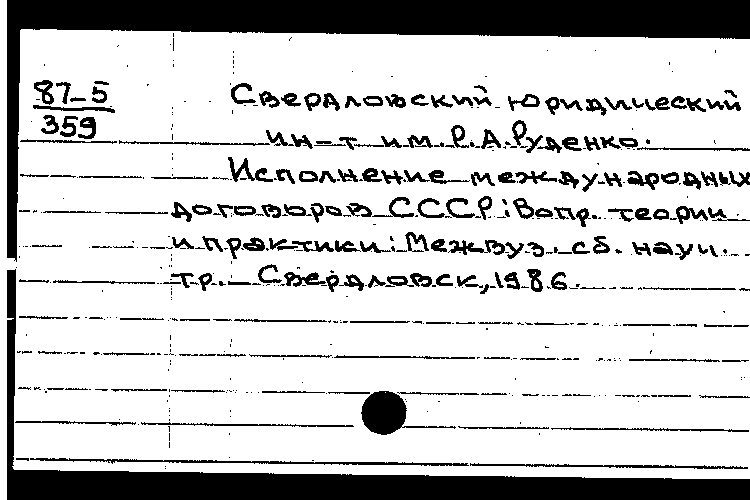 87-5
359
Свердловский юридический
ин-т им. Р.А.Руденко.
Исполнение международных
договоров СССР: Вопр. теории
и практики: Межвуз. сб. науч.
тр. – Свердловск, 1986.